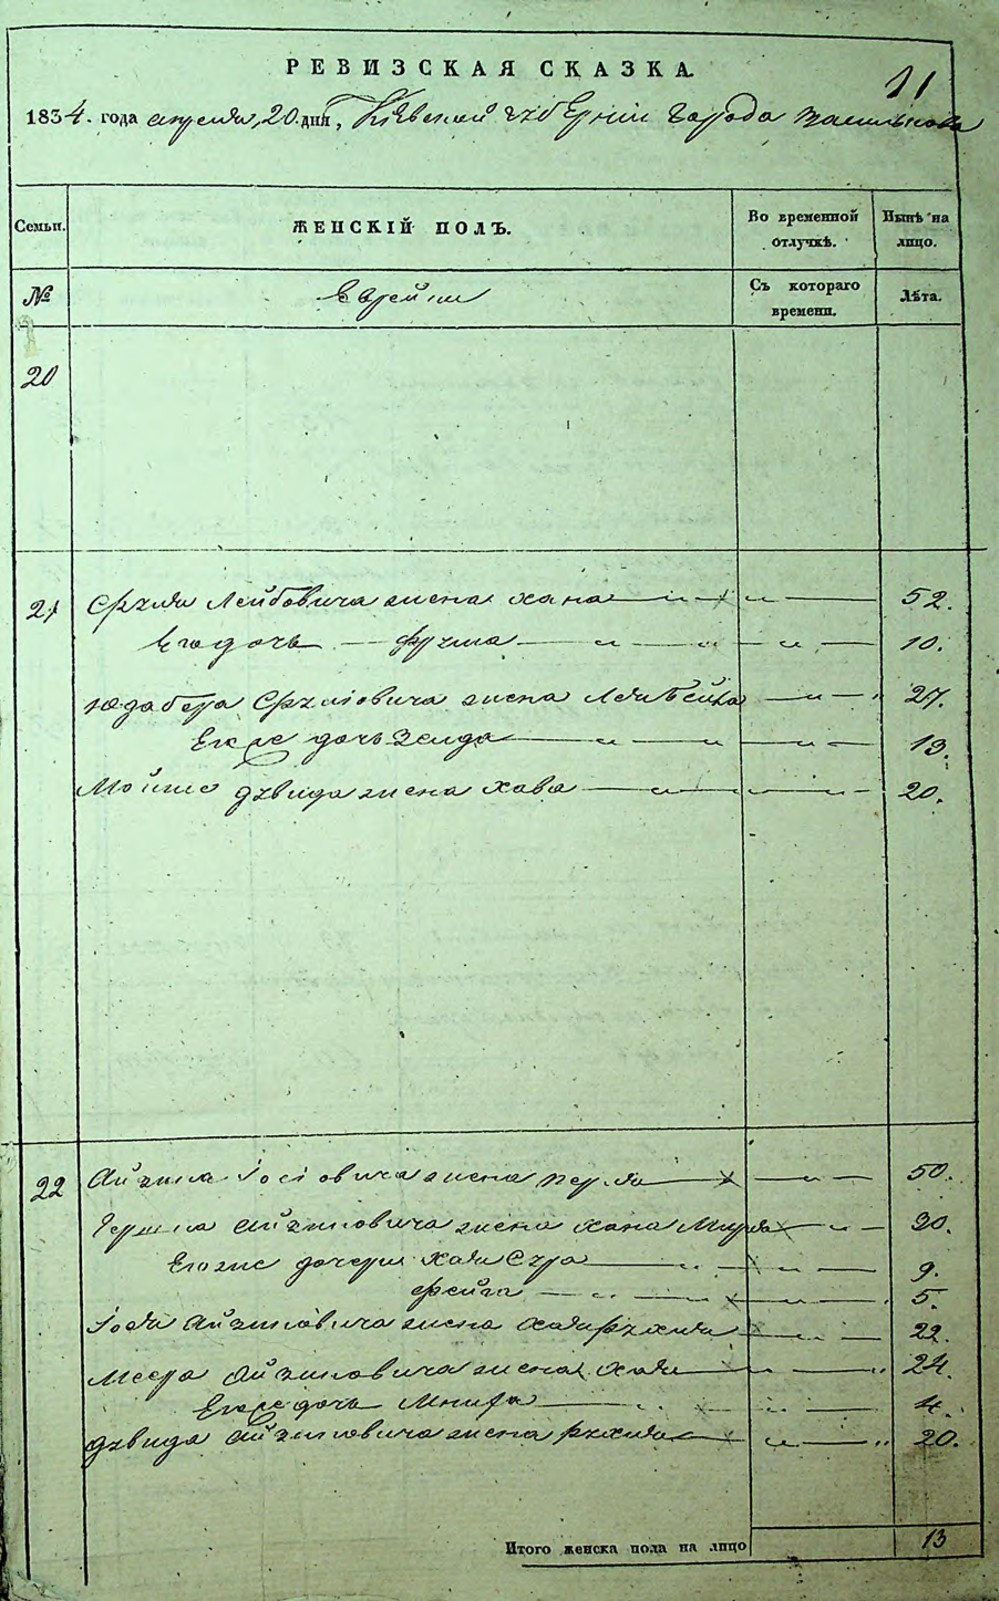 11
РЕВИЗСКАЯ СКАЗКА.
1834. года апреля, 20. дня, Кіевской губерніи города Василькова
Семьи. ЖЕНСКІЙ ПОЛЪ. Во временной отлучкѣ. Нынѣ на лицо.
№ Еврейки Съ котораго времени. Лѣта.
20
21 Сруля Лейбовича жена Хана 52.
Его дочь Фрума 10.
Юдабера Срулiовича жена Лея Бейла 27.
Его же дочь Зелда 13.
Мойше Дувида жена Хава 20.
22 Айзика Iосiовича жена Перля 50.
Гершка Айзиковича жена Хана Мирля 30.
Его же дочери Хая Сура 9.
Фейга 5.
Айзиковича жена Хая Рухля 22.
Меера Айзиковича жена Хая 24.
Его же дочь 4.
Дувида Айзиковича жена Рухля 20.
Итого женска пола на лицо 13